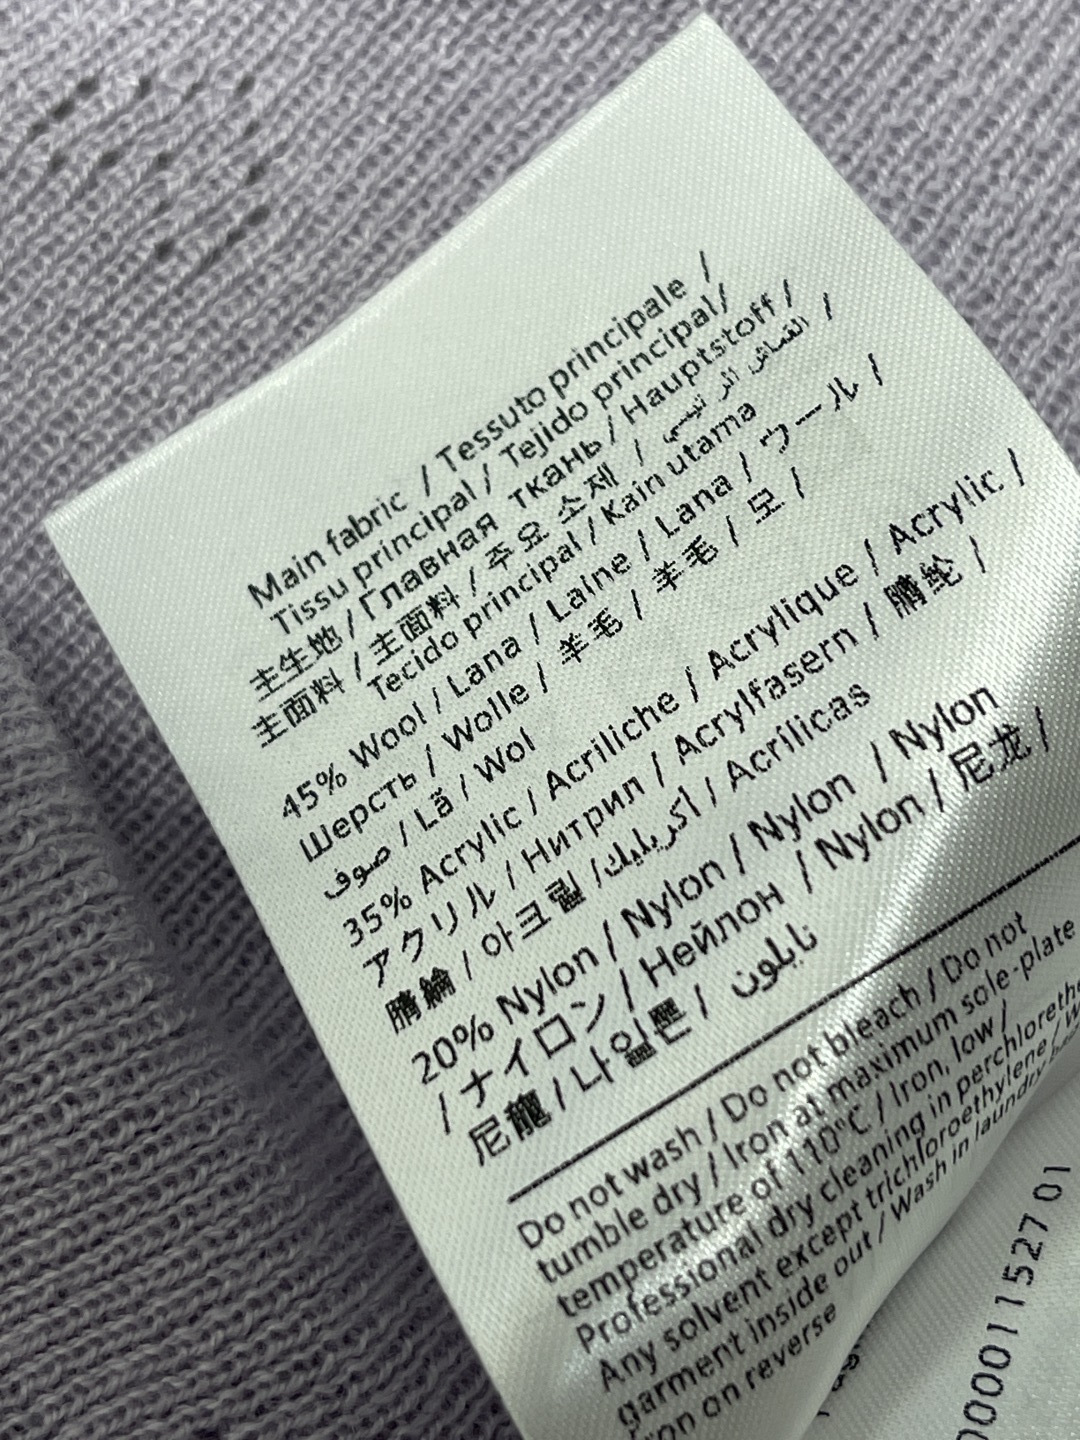 Main fabric / Tessuto principale /
Tissu principal / Tejido principal/
主生地 / Главная ткань / Hauptstoff /
主面料 / 主面料 / 주요 소재 / القماش الرئيسي /
Tecido principal / Kain utama
45% Wool / Lana / Laine / Lana / ウール /
Шерсть / Wolle / 羊毛 / 羊毛 / 모 /
صوف / Lã / Wol
35% Acrylic / Acriliche / Acrylique / Acrylic /
アクリル / Нитрил / Acrylfasern / 腈纶 /
腈綸 / 아크릴 /اكريليك / Acrílicas
20% Nylon / Nylon / Nylon / Nylon
/ ナイロン / Нейлон / Nylon / 尼龙 /
尼龍 / 나일론 / نايلون
Do not wash / Do not bleach / Do not
tumble dry / Iron at maximum sole-plate
temperature of 110°C / Iron, low /
Professional dry cleaning in
Any solvent except trichloroethylene /
garment inside out / Wash in laundry
on reverse
0000115270 1